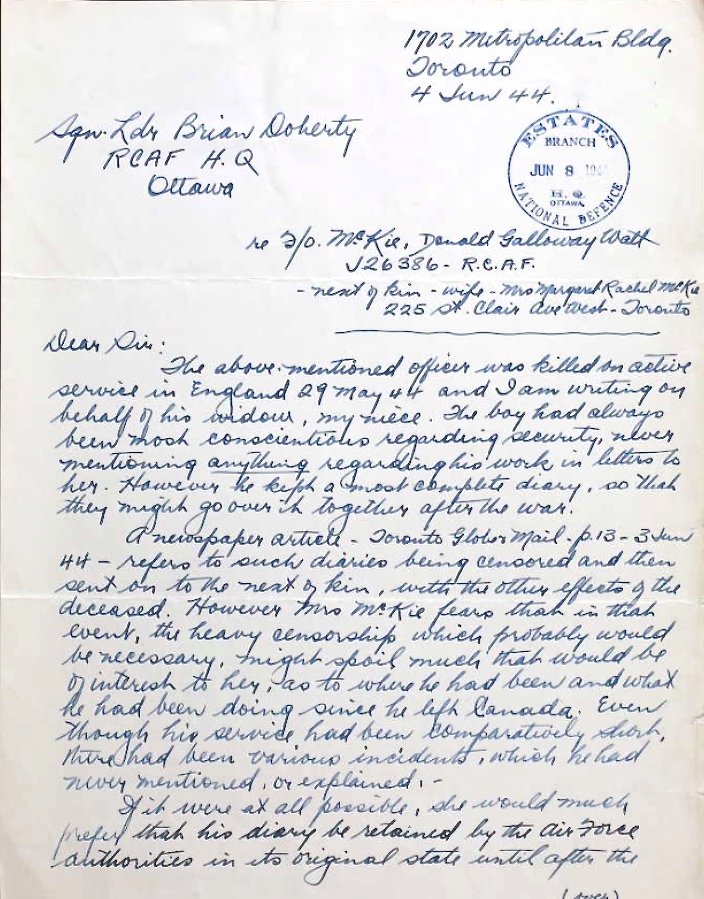 1702 Metropolitan Bldg.
Toronto
4 Jun 44.
ESTATES
BRANCH
JUN 8 194
H. Q.
OTTAWA
NATIONAL DEFENCE
Sqn. Ldr Brian Doherty
RCAF H.Q
Ottawa
re F/O. McKie, Donald Galloway Watt
J26386 - R.C.A.F.
- next of kin - wife - Mrs Margaret Rachel McKie
225 St. Clair Ave West - Toronto
Dear Sir:
The above-mentioned officer was killed on active
service in England 29 May 44 and I am writing on
behalf of his widow, my niece. The boy had always
been most conscientious regarding security, never
mentioning anything regarding his work in letters to
her. However he kept a most complete diary, so that
they might go over it together after the war.
A newspaper article - Toronto Globe & Mail - p.13 - 3 Jun
44 - refers to such diaries being censored and then
sent on to the next of kin, with the other effects of the
deceased. However Mrs McKie fears that in that
event, the heavy censorship which probably would
be necessary, might spoil much that would be
of interest to her, as to where he had been and what
he had been doing since he left Canada. Even
though his service had been comparatively short,
there had been various incidents, which he had
never mentioned, or explained. -
If it were at all possible, she would much
prefer that his diary be retained by the Air Force
authorities in its original state until after the
(over)